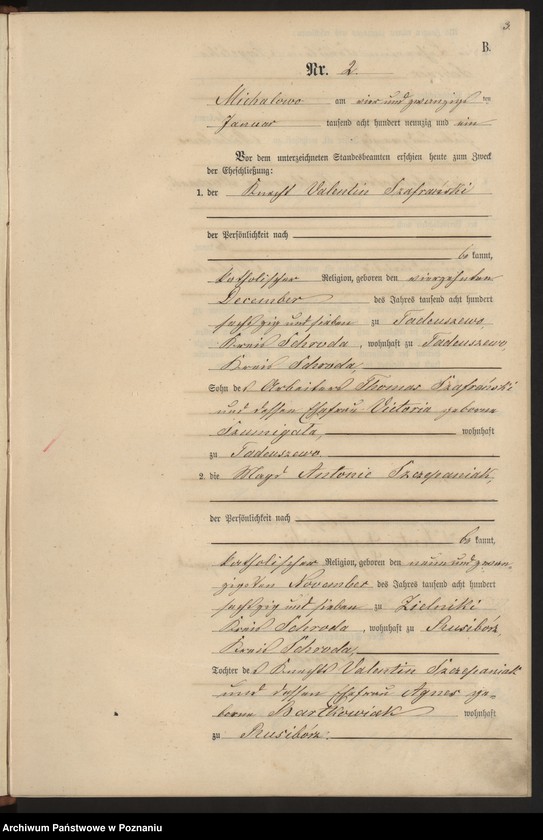 3.
B.
Nr. 2.
Michalowo am vier und zwanzigsten
Januar tausend acht hundert neunzig und ein
Vor dem unterzeichneten Standesbeamten erschien heute zum Zweck
der Eheschließung:
1. der Knecht Valentin Szafrański
der Persönlichkeit nach
be kannt,
katholischer Religion, geboren den vierzehnten
December des Jahres tausend acht hundert
sechzig und sieben zu Tadeuszewo,
Kreis Schroda, wohnhaft zu Tadeuszewo,
Kreis Schroda,
Sohn des Arbeiters Thomas Szafrański
und dessen Ehefrau Victoria geborne
Szumigala, wohnhaft
zu Tadeuszewo.
2. die Magd Antonie Szczepaniak,
der Persönlichkeit nach
be kannt,
katholischer Religion, geboren den neun und zwan-
zigsten November des Jahres tausend acht hundert
sechzig und sieben zu Zielniki
Kreis Schroda, wohnhaft zu Rusibórz
Kreis Schroda,
Tochter des Knechts Valentin Szczepaniak
und dessen Ehefrau Agnes ge-
borne Bartkowiak wohnhaft
zu Rusibórz.
Archiwum Państwowe w Poznaniu